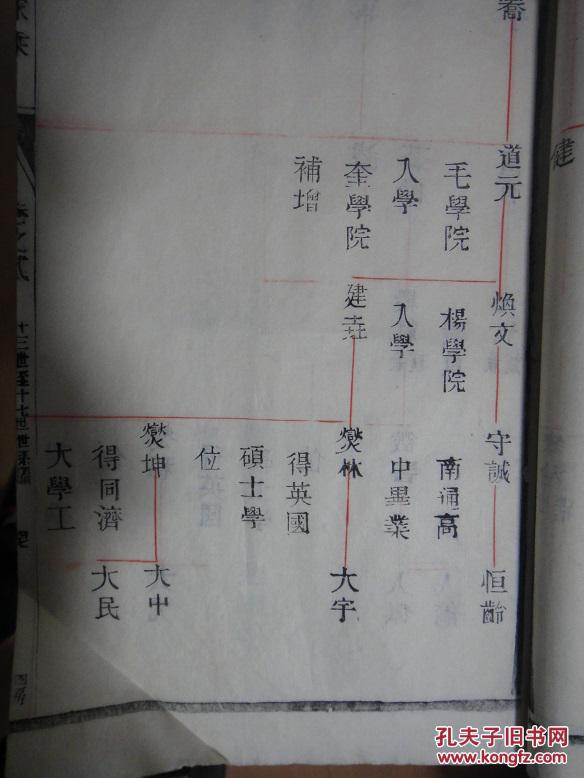 喬
道元
毛學院
入學
奎學院
補增
煥文
楊學院
入學
建
守誠
南通高
中畢業
爕林
得英國
碩士學
位
爕坤
得同濟
大學工
恒齡
大宇
大中
大民
十三世至十七世世系圖
健
孔夫子旧书网
www.kongfz.com